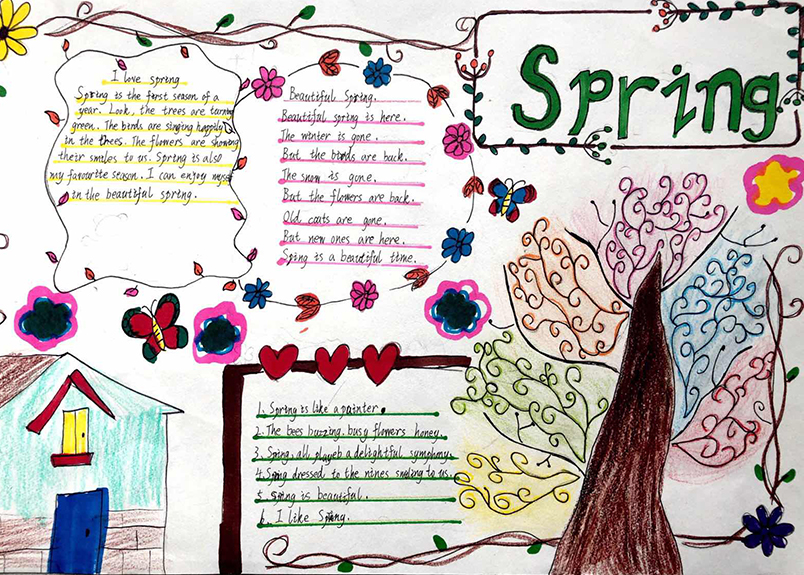 Spring
I love spring
Spring is the first season of a
year. Look, the trees are turning
green. The birds are singing happily
in the trees. The flowers are showing
their smiles to us. Spring is also
my favourite season. I can enjoy myself
in the beautiful spring.
Beautiful Spring.
Beautiful spring is here.
The winter is gone.
But the birds are back.
The snow is gone.
But the flowers are back.
Old coats are gone.
But new ones are here.
Sping is a beautiful time.
1. Spring is like a painter.
2. The bees buzzing. busy flowers honey.
3. Sping. all playeb a delightful symphony.
4. Sping dressed to the nines smeling to us.
5. Sping is beautiful.
6. I like Spring.